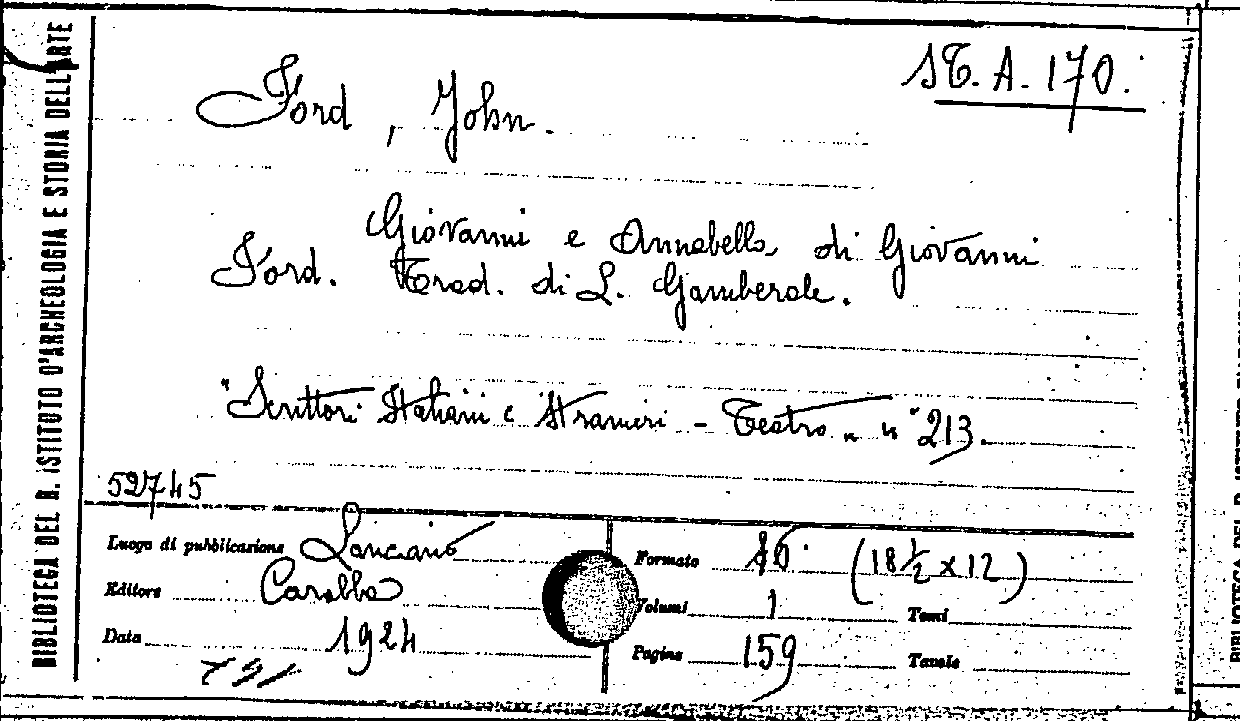 BIBLIOTECA DEL R. ISTITUTO D'ARCHEOLOGIA E STORIA DELL'ARTE
ST. A. 170.
Ford, John.
Giovanni e Annabella di Giovanni
Ford. Trad. di L. Gamberale.
"Scrittori Italiani e Stranieri - Teatro" n° 213.
52745
Luogo di pubblicazione Lanciano
Formato 16° (18 1/2 x 12)
Editore Carabba
Volumi 1 Tomi
Data 1924
Pagine 159 Tavole